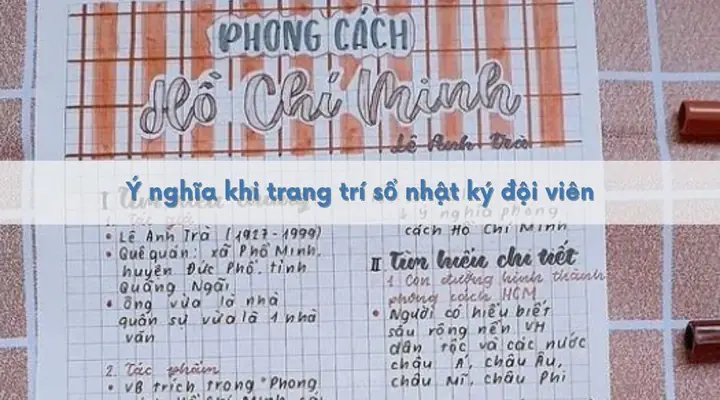 PHONG CÁCH
Hồ Chí Minh
Lê Anh Trà
Ý nghĩa khi trang trí sổ nhật ký đội viên
I
1. Tác giả
• Lê Anh Trà (1927-1999)
• Quê quán: xã Phổ Minh,
huyện Đức Phổ, tỉnh
Quảng Ngãi.
• ông vừa là nhà
quân sự vừa là 1 nhà
văn
2. Tác phẩm
• VB trích trong "Phong
↓ Ý nghĩa phong
cách Hồ Chí Minh
II Tìm hiểu chi tiết
1 Con đường hình thành
phong cách HCM
• Người có hiểu biết
sâu rộng nền VH
dân tộc và các nước
châu Á, châu Âu,
châu Mĩ, châu Phi